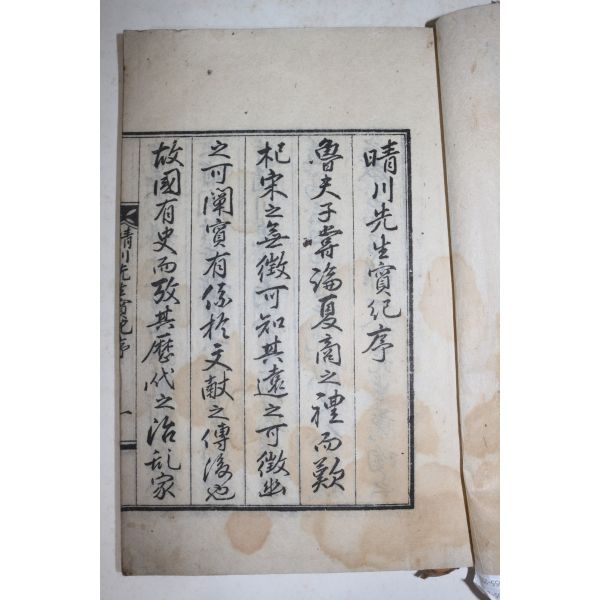 晴川先生實紀序
魯夫子嘗論夏商之禮而歎
杞宋之無徵可知其遠之可徵幽
之可闡實有係於文獻之傳後也
故國有史而攷其歷代之治乱家
晴川先生實紀序 一